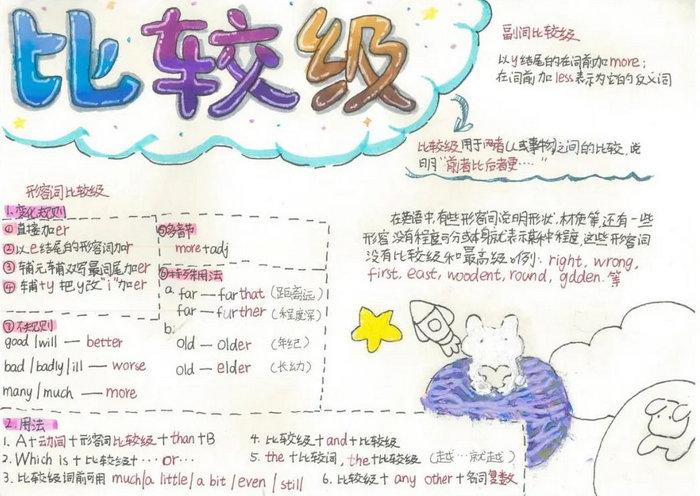 比较级
副词比较级
以y结尾的在词前加more;
在词前加less表示为它的反义词
比较级用于两者(人或事物)之间的比较,说
明"前者比后者更……"
形容词比较级
1.变化规则
①直接加er
②以e结尾的形容词加r
③辅元辅双写最词尾加er
④辅+y 把y改"i"加er
⑤多音节
more+adj
⑥特殊用法
a. far — farthat (距离远)
far — further (程度深)
b.
old — older (年纪)
old — elder (长幼)
⑦不规则
good/will — better
bad/badly/ill — worse
many/much — more
在英语中,有些形容词说明形状、材质等,还有一些
形容词没有程度可分或本身就表示某种程度,这些形容词
没有比较级和最高级。例: right, wrong,
first, east, woodent, round, gdden. 等
2.用法
1. A+动词+形容词比较级+than+B
2. Which is + 比较级+ … or…
3. 比较级词前可用 much/a little/a bit/even/still
4. 比较级+and+比较级
5. the+比较词, the+比较级 (越…就越)
6. 比较级+ any other +名词复数